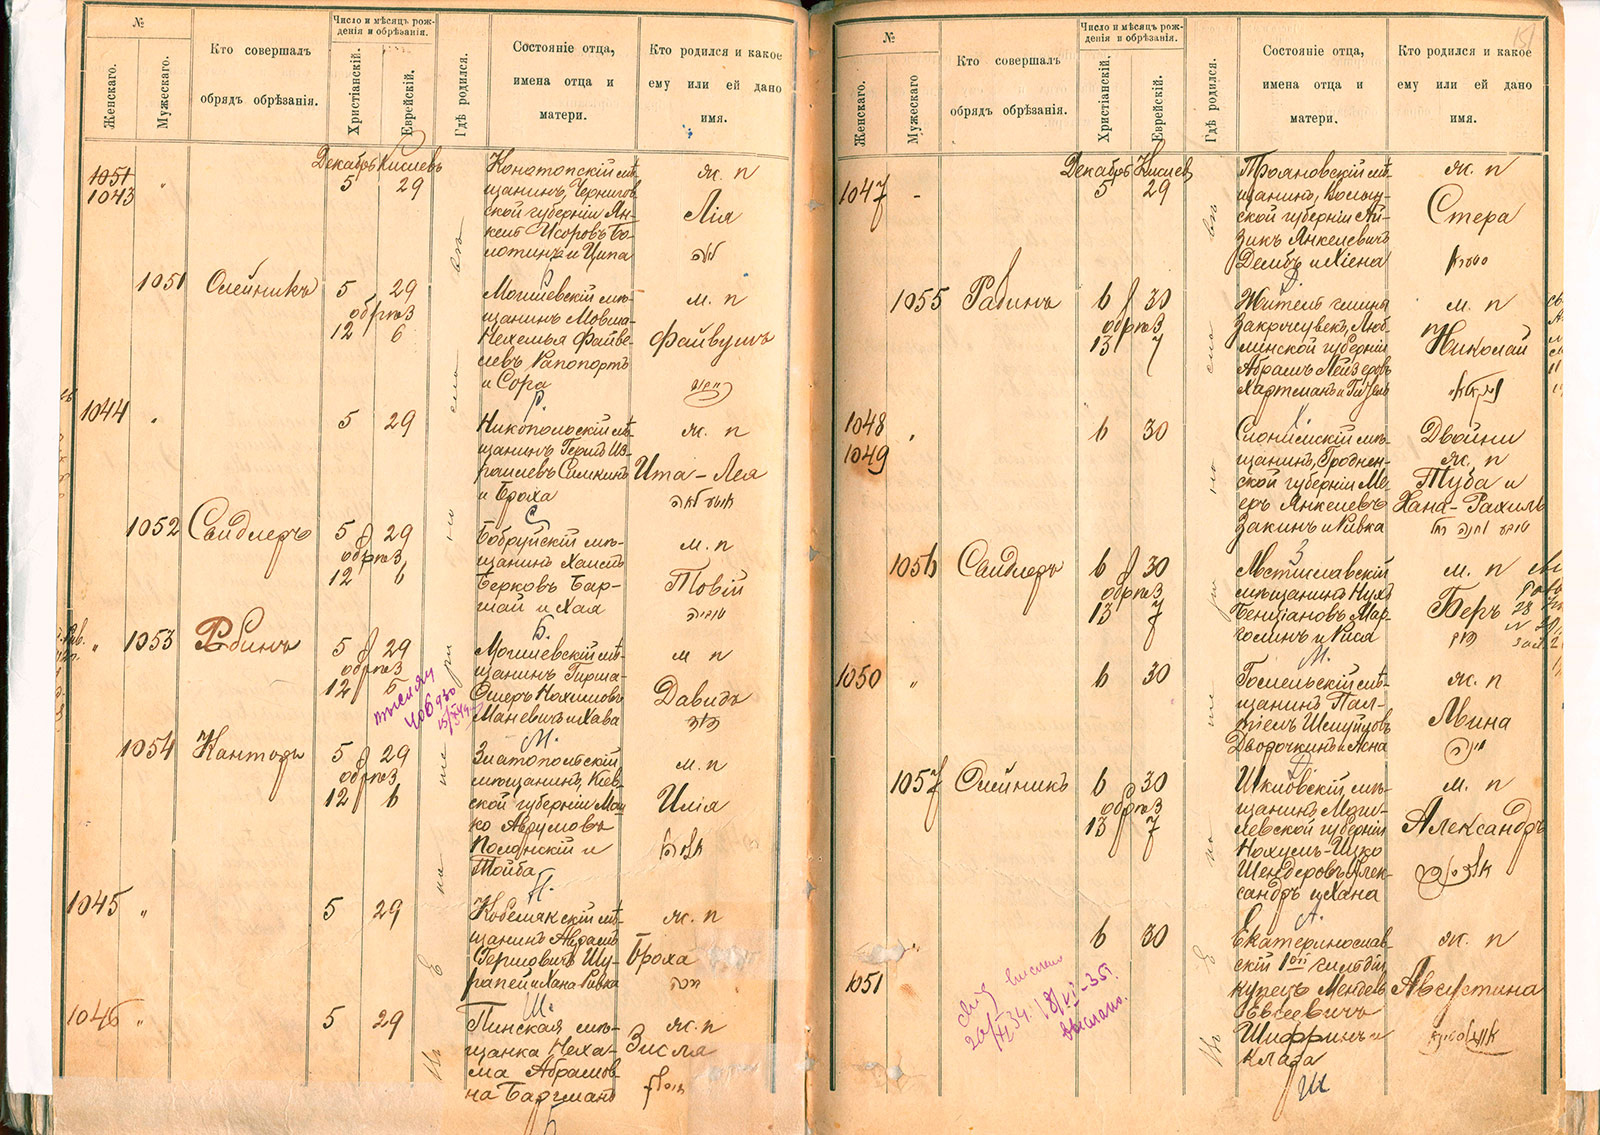 №
Женскаго.
Мужескаго.
Кто совершалъ
обрядъ обрѣзанія.
Число и мѣсяцъ рож-
денія и обрѣзанія.
Христіанскій.
Еврейскій.
Гдѣ родился.
Состояніе отца,
имена отца и
матери.
Кто родился и какое
ему или ей дано
имя.
Декабрь Кислевъ
1051
1043 " 5 29
Конотопскій мѣ-
щанинъ, Чернигов
ской губерніи Ян-
кель
и Ципа
ж. п
Лія
לאה
1051 Олейникъ 5 29
обрѣз
12 6
Могилевскій мѣ-
щанинъ Мовша-
Нехемья Файве-
левъ Рапопортъ
и Сора
Р.
м. п
Файвушъ
1044 " 5 29
Никопольскій мѣ-
щанинъ Гершъ Из-
раилевъ Симкинъ
и Броха
С
ж. п
Ита-Лея
איטע לאה
1052 Сандлеръ 5 29
обрѣз
12 6
Бобруйскій мѣ-
щанинъ Хаимъ
Берковъ Бар-
и Хая
Б.
м. п
Товій
טוביה
1053 Рабинъ 5 29
обрѣз
12 6
Могилевскій мѣ-
щанинъ Гирша-
Нохимовъ
Маневичъ и Хава
М.
м п
Давидъ
דוד
1054 Канторъ 5 29
обрѣз
12 6
Златопольскій
мѣщанинъ, Кіев-
ской губерніи
ко Аврумовъ
Полонскій и
Тойба
П.
м. п
Илія
אליהו
1045 " 5 29
Кобелякскій мѣ-
щанинъ Абрамъ
Гершовичъ Шу-
рапей и Хана-Ривка
Ш.
ж. п
Броха
ברכה
1046 " 5 29
Пинская мѣ-
щанка, Неха-
ма Абрамов-
на Баргманъ
Б
ж. п
Зисля
זיסלא
Въ Екатеринославѣ
№
Женскаго.
Мужескаго
Кто совершалъ
обрядъ обрѣзанія.
Число и мѣсяцъ рож-
денія и обрѣзанія.
Христіанскій.
Еврейскій.
Гдѣ родился.
Состояніе отца,
имена отца и
матери.
Кто родился и какое
ему или ей дано
имя.
151
Декабрь Кислев
1047 - 5 29
Трояновскій мѣ-
щанинъ, Волын-
ской губерніи Ай-
зикъ Янкелевичъ
Дембъ и Хіена
Д
ж. п
Стера
סטערא
1055 Рабинъ 6 30
обрѣз
13 7
Житель гмины
Закржувек, Люб-
линской губерніи
Абрамъ Лейзеровъ
Хартманъ и Гизель
Х
м. п
Николай
1048
1049 " 6 30
Слонимскій мѣ-
щанинъ, Гроднен-
ской губерніи Ме-
еръ Янкелевъ
Закинъ и Ривка
З
Двойни
ж. п
Туба и
Хана-Рахиль
טובע וחנה רחל
1056 Сандлеръ 6 30
обрѣз
13 7
Мстиславскій
мѣщанинъ Нухъ
Бенціановъ Мар-
голинъ и Рися
М.
м. п
Беръ
דוב
1050 " 6 30
Гомельскій мѣ-
щанинъ Пал-
тіелъ Шмуйловъ
Дворочкинъ и Асна
Д
ж. п
Мина
מינה
1057 Олейникъ 6 30
обрѣз
13 7
Шкловскій, мѣ-
щанинъ, Моги-
левской губерніи
Нохумъ-Ицко
Шендеровъ Алек-
сандръ и Хана
А.
м. п
Александръ
1051 " 6 30
Екатеринослав-
скій 1ой гильдіи
купецъ Мендель
Евсеевичъ
Шифринъ и
Клара
Ш
ж. п
Августина
Въ Екатеринославѣ
выслано.